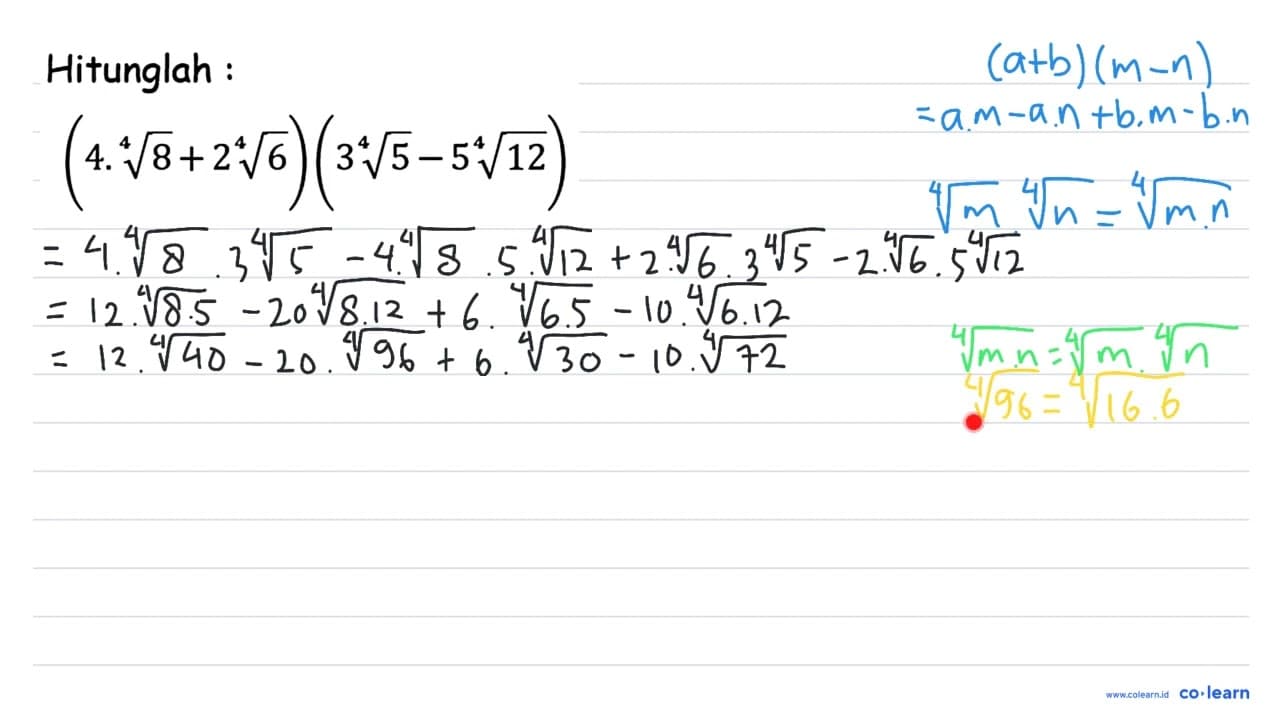 Hitunglah :
(4.∜8 + 2∜6)(3∜5 − 5∜12)
= 4.∜8 . 3∜5 − 4.∜8 . 5.∜12 + 2.∜6 . 3∜5 − 2.∜6 . 5∜12
= 12.∜8.5 − 20∜8.12 + 6.∜6.5 − 10.∜6.12
= 12.∜40 − 20.∜96 + 6.∜30 − 10.∜72
(a+b)(m−n)
= a.m − a.n + b.m − b.n
∜m ∜n = ∜m.n
∜m.n = ∜m . ∜n
∜96 = ∜16.6
www.colearn.id co·learn